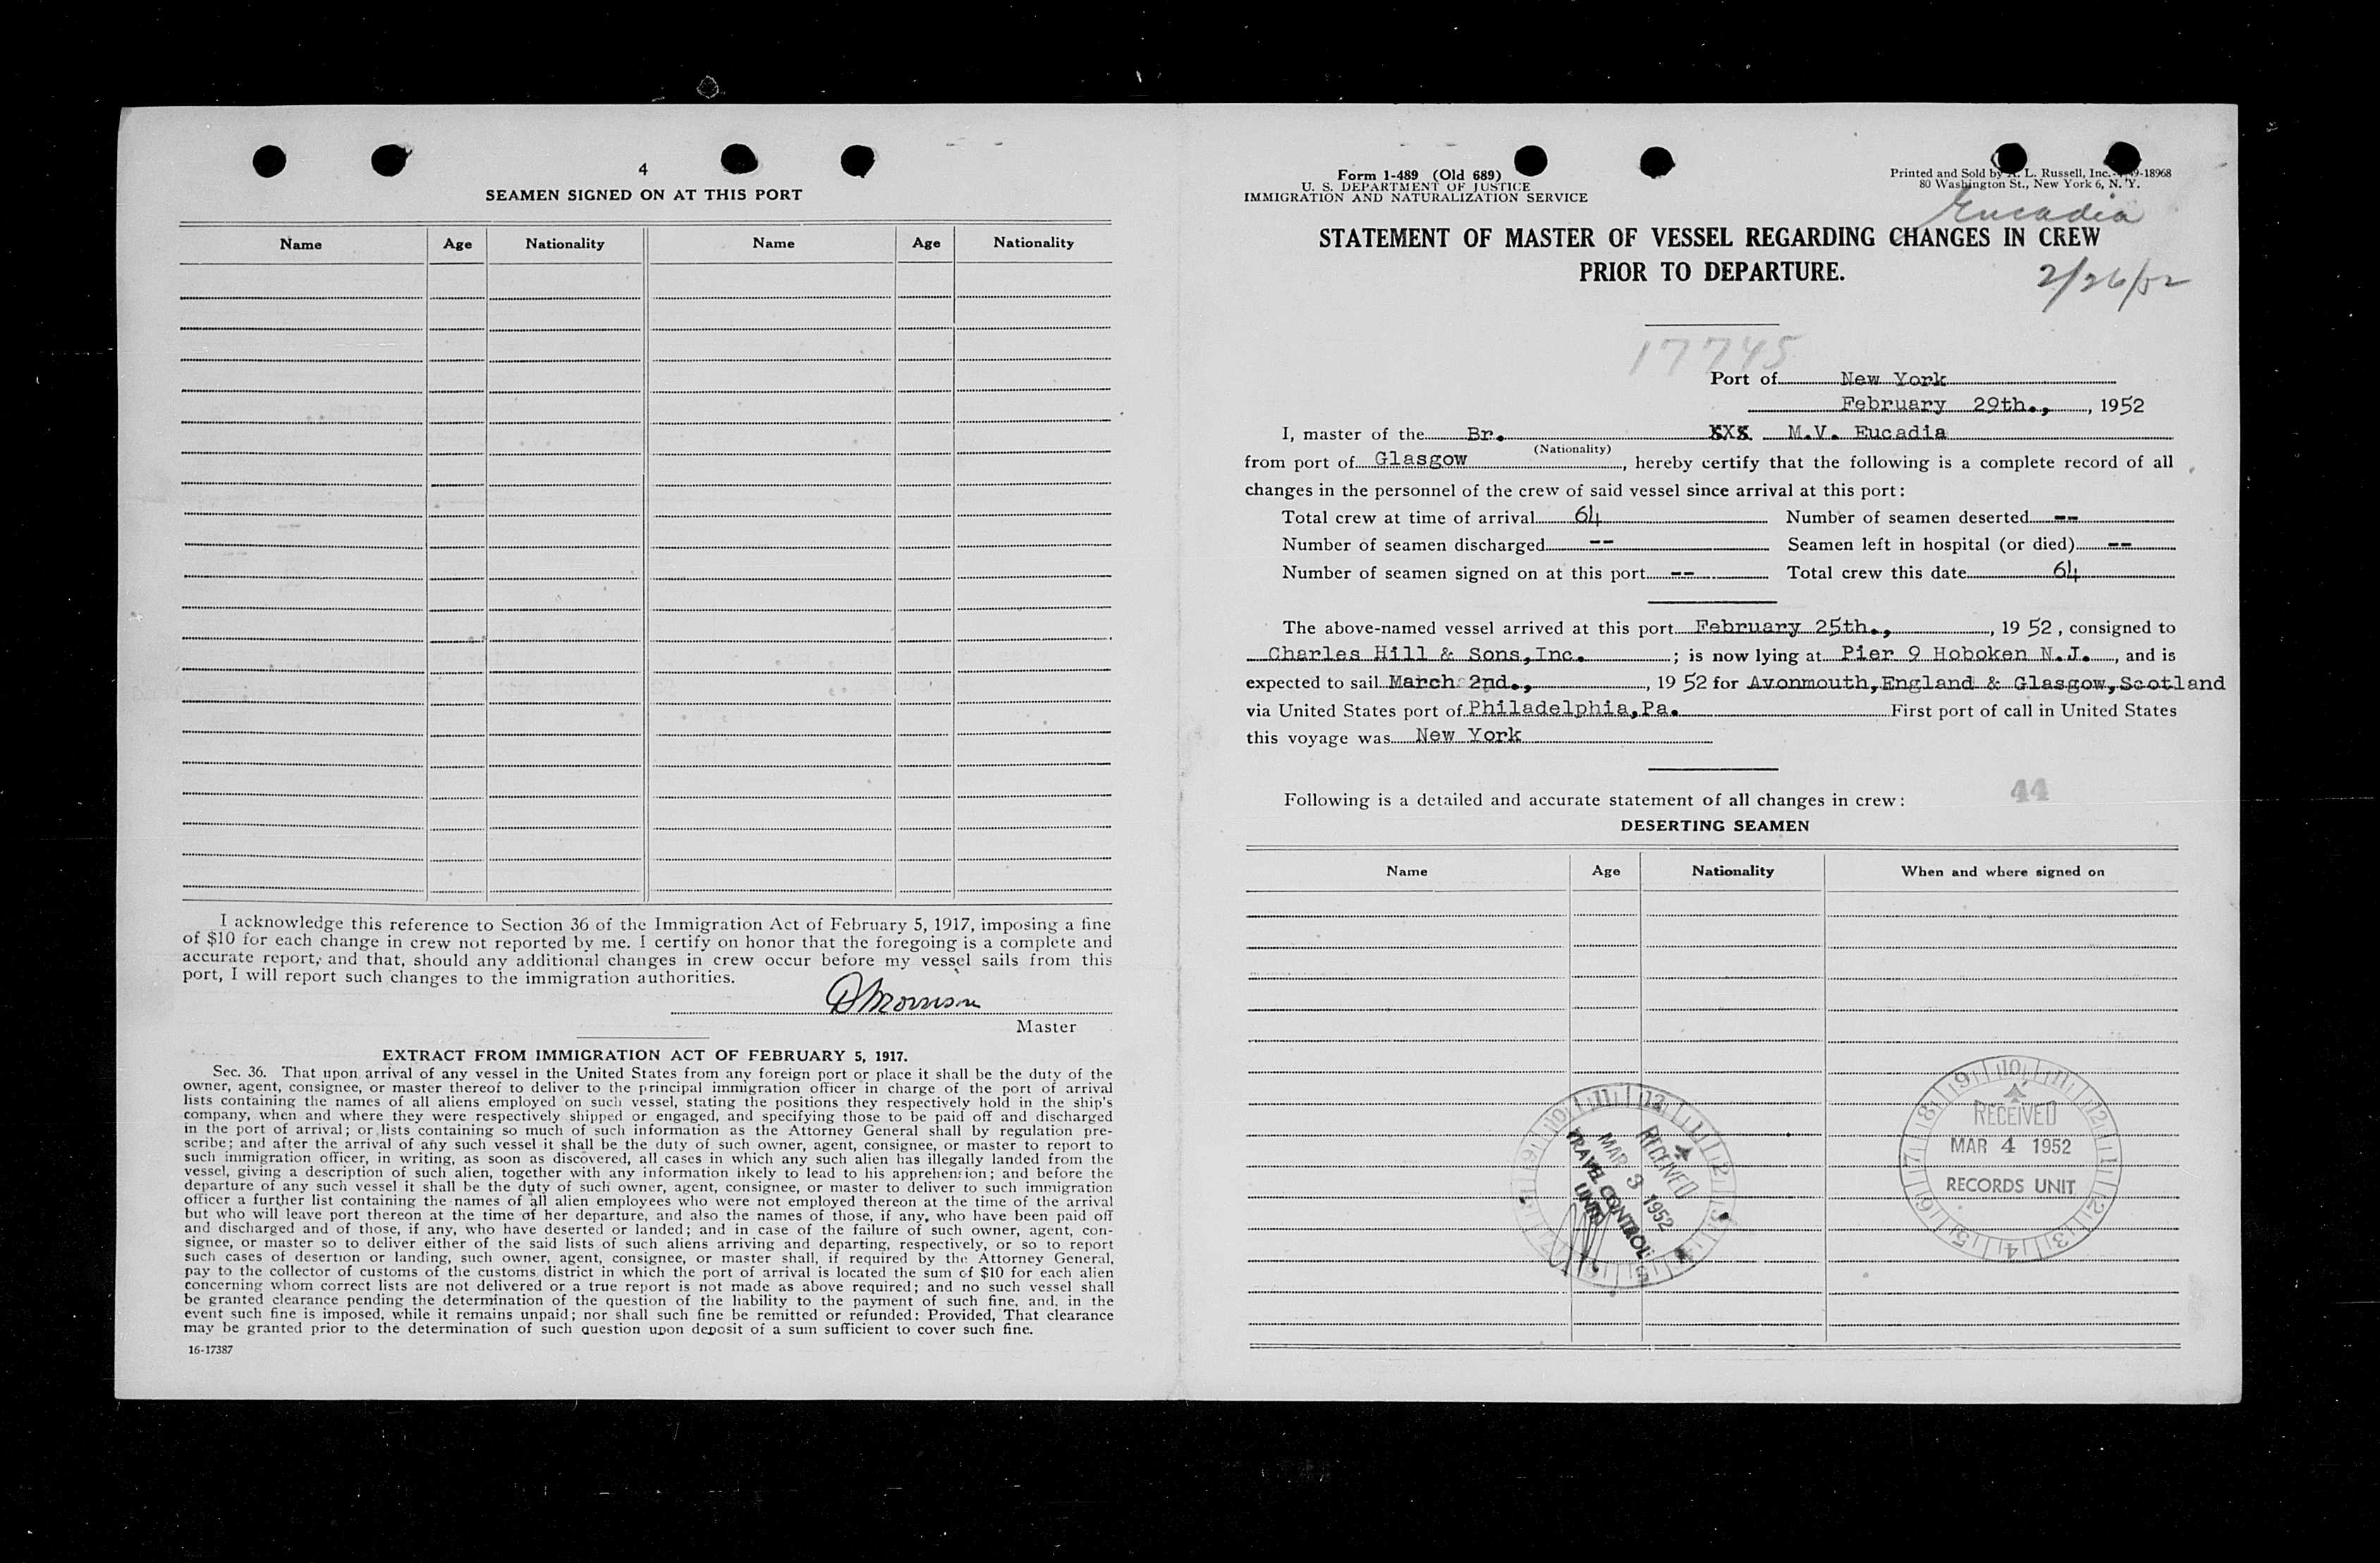 4
SEAMEN SIGNED ON AT THIS PORT
Name Age Nationality Name Age Nationality
I acknowledge this reference to Section 36 of the Immigration Act of February 5, 1917, imposing a fine
of $10 for each change in crew not reported by me. I certify on honor that the foregoing is a complete and
accurate report, and that, should any additional changes in crew occur before my vessel sails from this
port, I will report such changes to the immigration authorities.
D Morrison
Master
EXTRACT FROM IMMIGRATION ACT OF FEBRUARY 5, 1917.
Sec. 36. That upon arrival of any vessel in the United States from any foreign port or place it shall be the duty of the
owner, agent, consignee, or master thereof to deliver to the principal immigration officer in charge of the port of arrival
lists containing the names of all aliens employed on such vessel, stating the positions they respectively hold in the ship's
company, when and where they were respectively shipped or engaged, and specifying those to be paid off and discharged
in the port of arrival; or lists containing so much of such information as the Attorney General shall by regulation pre-
scribe; and after the arrival of any such vessel it shall be the duty of such owner, agent, consignee, or master to report to
such immigration officer, in writing, as soon as discovered, all cases in which any such alien has illegally landed from the
vessel, giving a description of such alien, together with any information likely to lead to his apprehension; and before the
departure of any such vessel it shall be the duty of such owner, agent, consignee, or master to deliver to such immigration
officer a further list containing the names of all alien employees who were not employed thereon at the time of the arrival
but who will leave port thereon at the time of her departure, and also the names of those, if any, who have been paid off
and discharged and of those, if any, who have deserted or landed; and in case of the failure of such owner, agent, con-
signee, or master so to deliver either of the said lists of such aliens arriving and departing, respectively, or so to report
such cases of desertion or landing, such owner, agent, consignee, or master shall, if required by the Attorney General,
pay to the collector of customs of the customs district in which the port of arrival is located the sum of $10 for each alien
concerning whom correct lists are not delivered or a true report is not made as above required; and no such vessel shall
be granted clearance pending the determination of the question of the liability to the payment of such fine, and, in the
event such fine is imposed, while it remains unpaid; nor shall such fine be remitted or refunded: Provided, That clearance
may be granted prior to the determination of such question upon deposit of a sum sufficient to cover such fine.
16-17387
Form 1-489 (Old 689)
U. S. DEPARTMENT OF JUSTICE
IMMIGRATION AND NATURALIZATION SERVICE
Printed and Sold by L. Russell, Inc. 9-18968
80 Washington St., New York 6, N. Y.
Eucadia
STATEMENT OF MASTER OF VESSEL REGARDING CHANGES IN CREW
PRIOR TO DEPARTURE.
2/26/52
17745
Port of New York
February 29th., , 1952
I, master of the Br. XXX M.V. Eucadia
(Nationality)
from port of Glasgow , hereby certify that the following is a complete record of all
changes in the personnel of the crew of said vessel since arrival at this port:
Total crew at time of arrival 64 Number of seamen deserted --
Number of seamen discharged -- Seamen left in hospital (or died) --
Number of seamen signed on at this port -- Total crew this date 64
The above-named vessel arrived at this port February 25th., , 19 52 , consigned to
Charles Hill & Sons,Inc. ; is now lying at Pier 9 Hoboken N.J. , and is
expected to sail March 2nd., , 19 52 for Avonmouth,England & Glasgow,Scotland
via United States port of Philadelphia,Pa. First port of call in United States
this voyage was New York
Following is a detailed and accurate statement of all changes in crew:
44
DESERTING SEAMEN
Name Age Nationality When and where signed on
RECEIVED
MAR 3 1952
TRAVEL CONTROL
UNIT
RECEIVED
MAR 4 1952
RECORDS UNIT